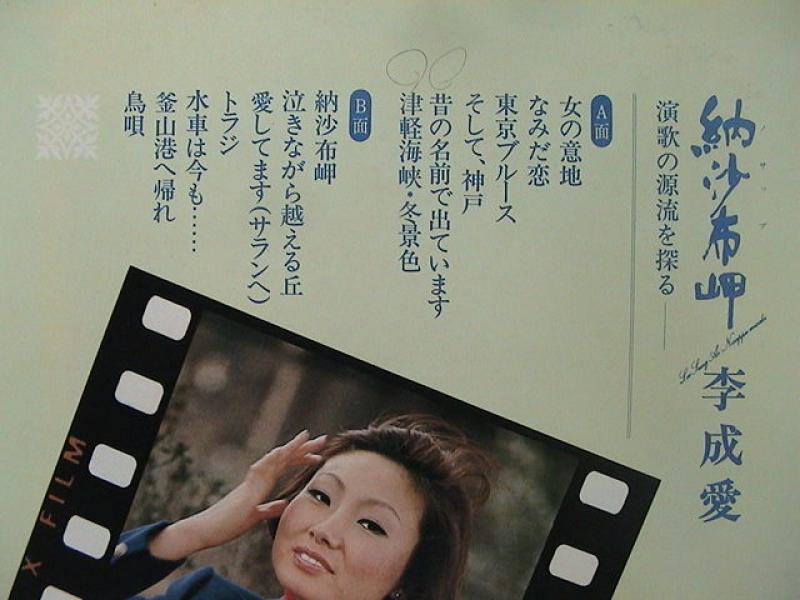 納沙布岬
ノサップ
Lee Sung Ae Nosappu misaki
李成愛
演歌の源流を探る——
A面
女の意地
なみだ恋
東京ブルース
そして、神戸
昔の名前で出ています
津軽海峡・冬景色
B面
納沙布岬
泣きながら越える丘
愛してます(サランヘ)
トラジ
水車は今も……
釜山港へ帰れ
鳥唄
X FILM